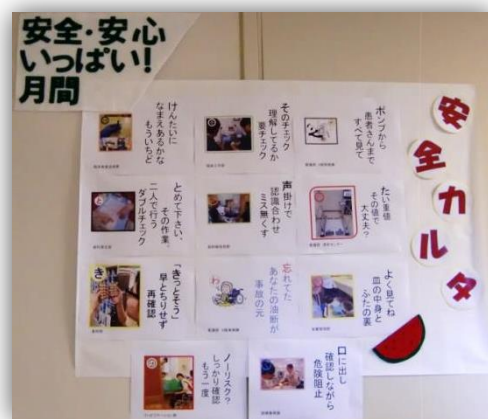 安全・安心
いっぱい!
月間
安全カルタ
ポンプから
患者さんまで
すべて見て
そのチェック
理解してるか
要チェック
けんたいに
なまえあるかな
もういちど
たい重値
その値で
大丈夫?
声掛けで
認識合わせ
ミス無くす
とめて下さい、
その作業、
二人で行う
ダブルチェック
よく見てね
皿の中身と
ふたの裏
忘れてた
あなたの油断が
事故の元
わ
「きっとそう」
早とちりせず
再確認
き
口に出し
確認しながら
危険阻止
ノーリスク?
しっかり確認
もう一度